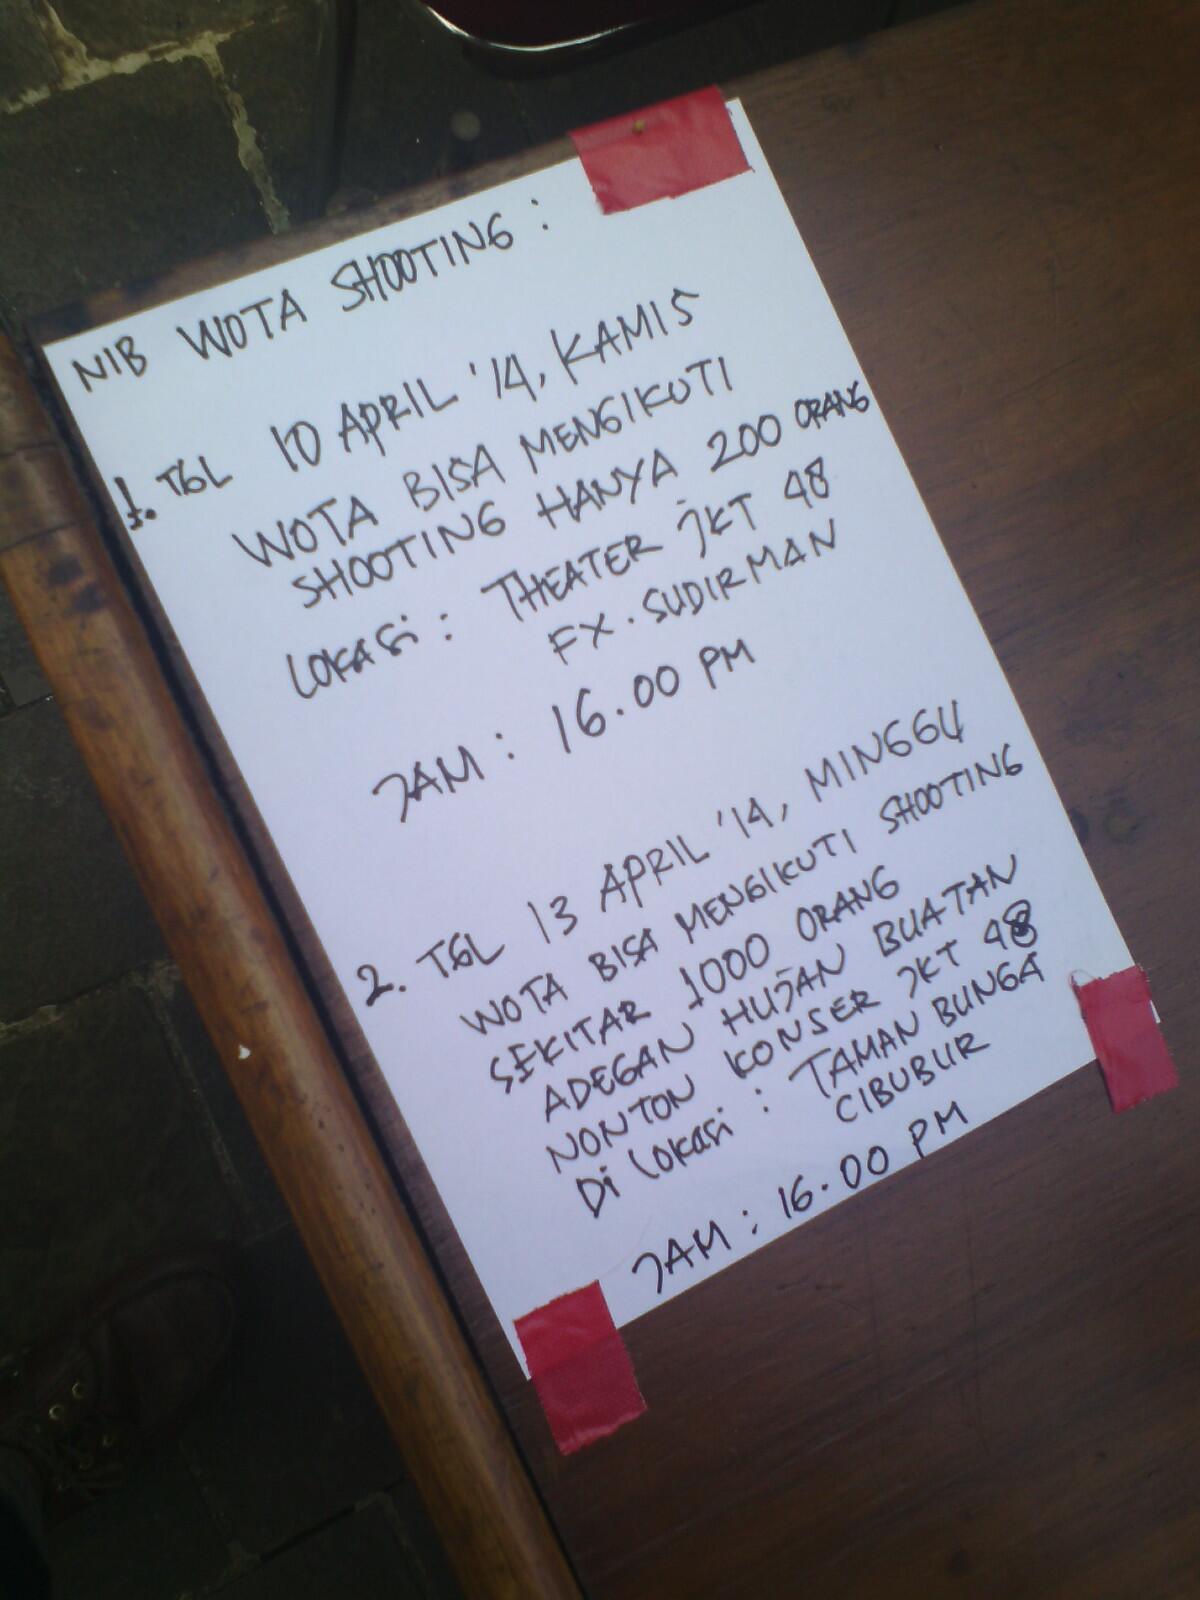 NIB WOTA SHOOTING :
1. TGL 10 APRIL '14, KAMIS
WOTA BISA MENGIKUTI
SHOOTING HANYA 200 ORANG
LOKASI : THEATER JKT 48
FX. SUDIRMAN
JAM : 16.00 PM
2. TGL 13 APRIL '14, MINGGU
WOTA BISA MENGIKUTI SHOOTING
SEKITAR 1000 ORANG
ADEGAN HUJAN BUATAN
NONTON KONSER JKT 48
Di LOKASi : TAMAN BUNGA
CIBUBUR
JAM : 16.00 PM